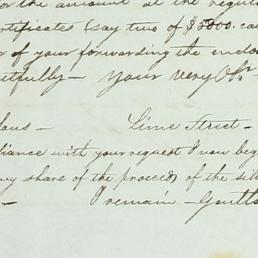 for the amount at the regula
ertificates (say two of $5000. ca
r of your forwarding the enclo
utfully— Your very Ob.
Lime Street—
liance with your request I now beg
my share of the proceeds of the sil
— I remain— Gentle